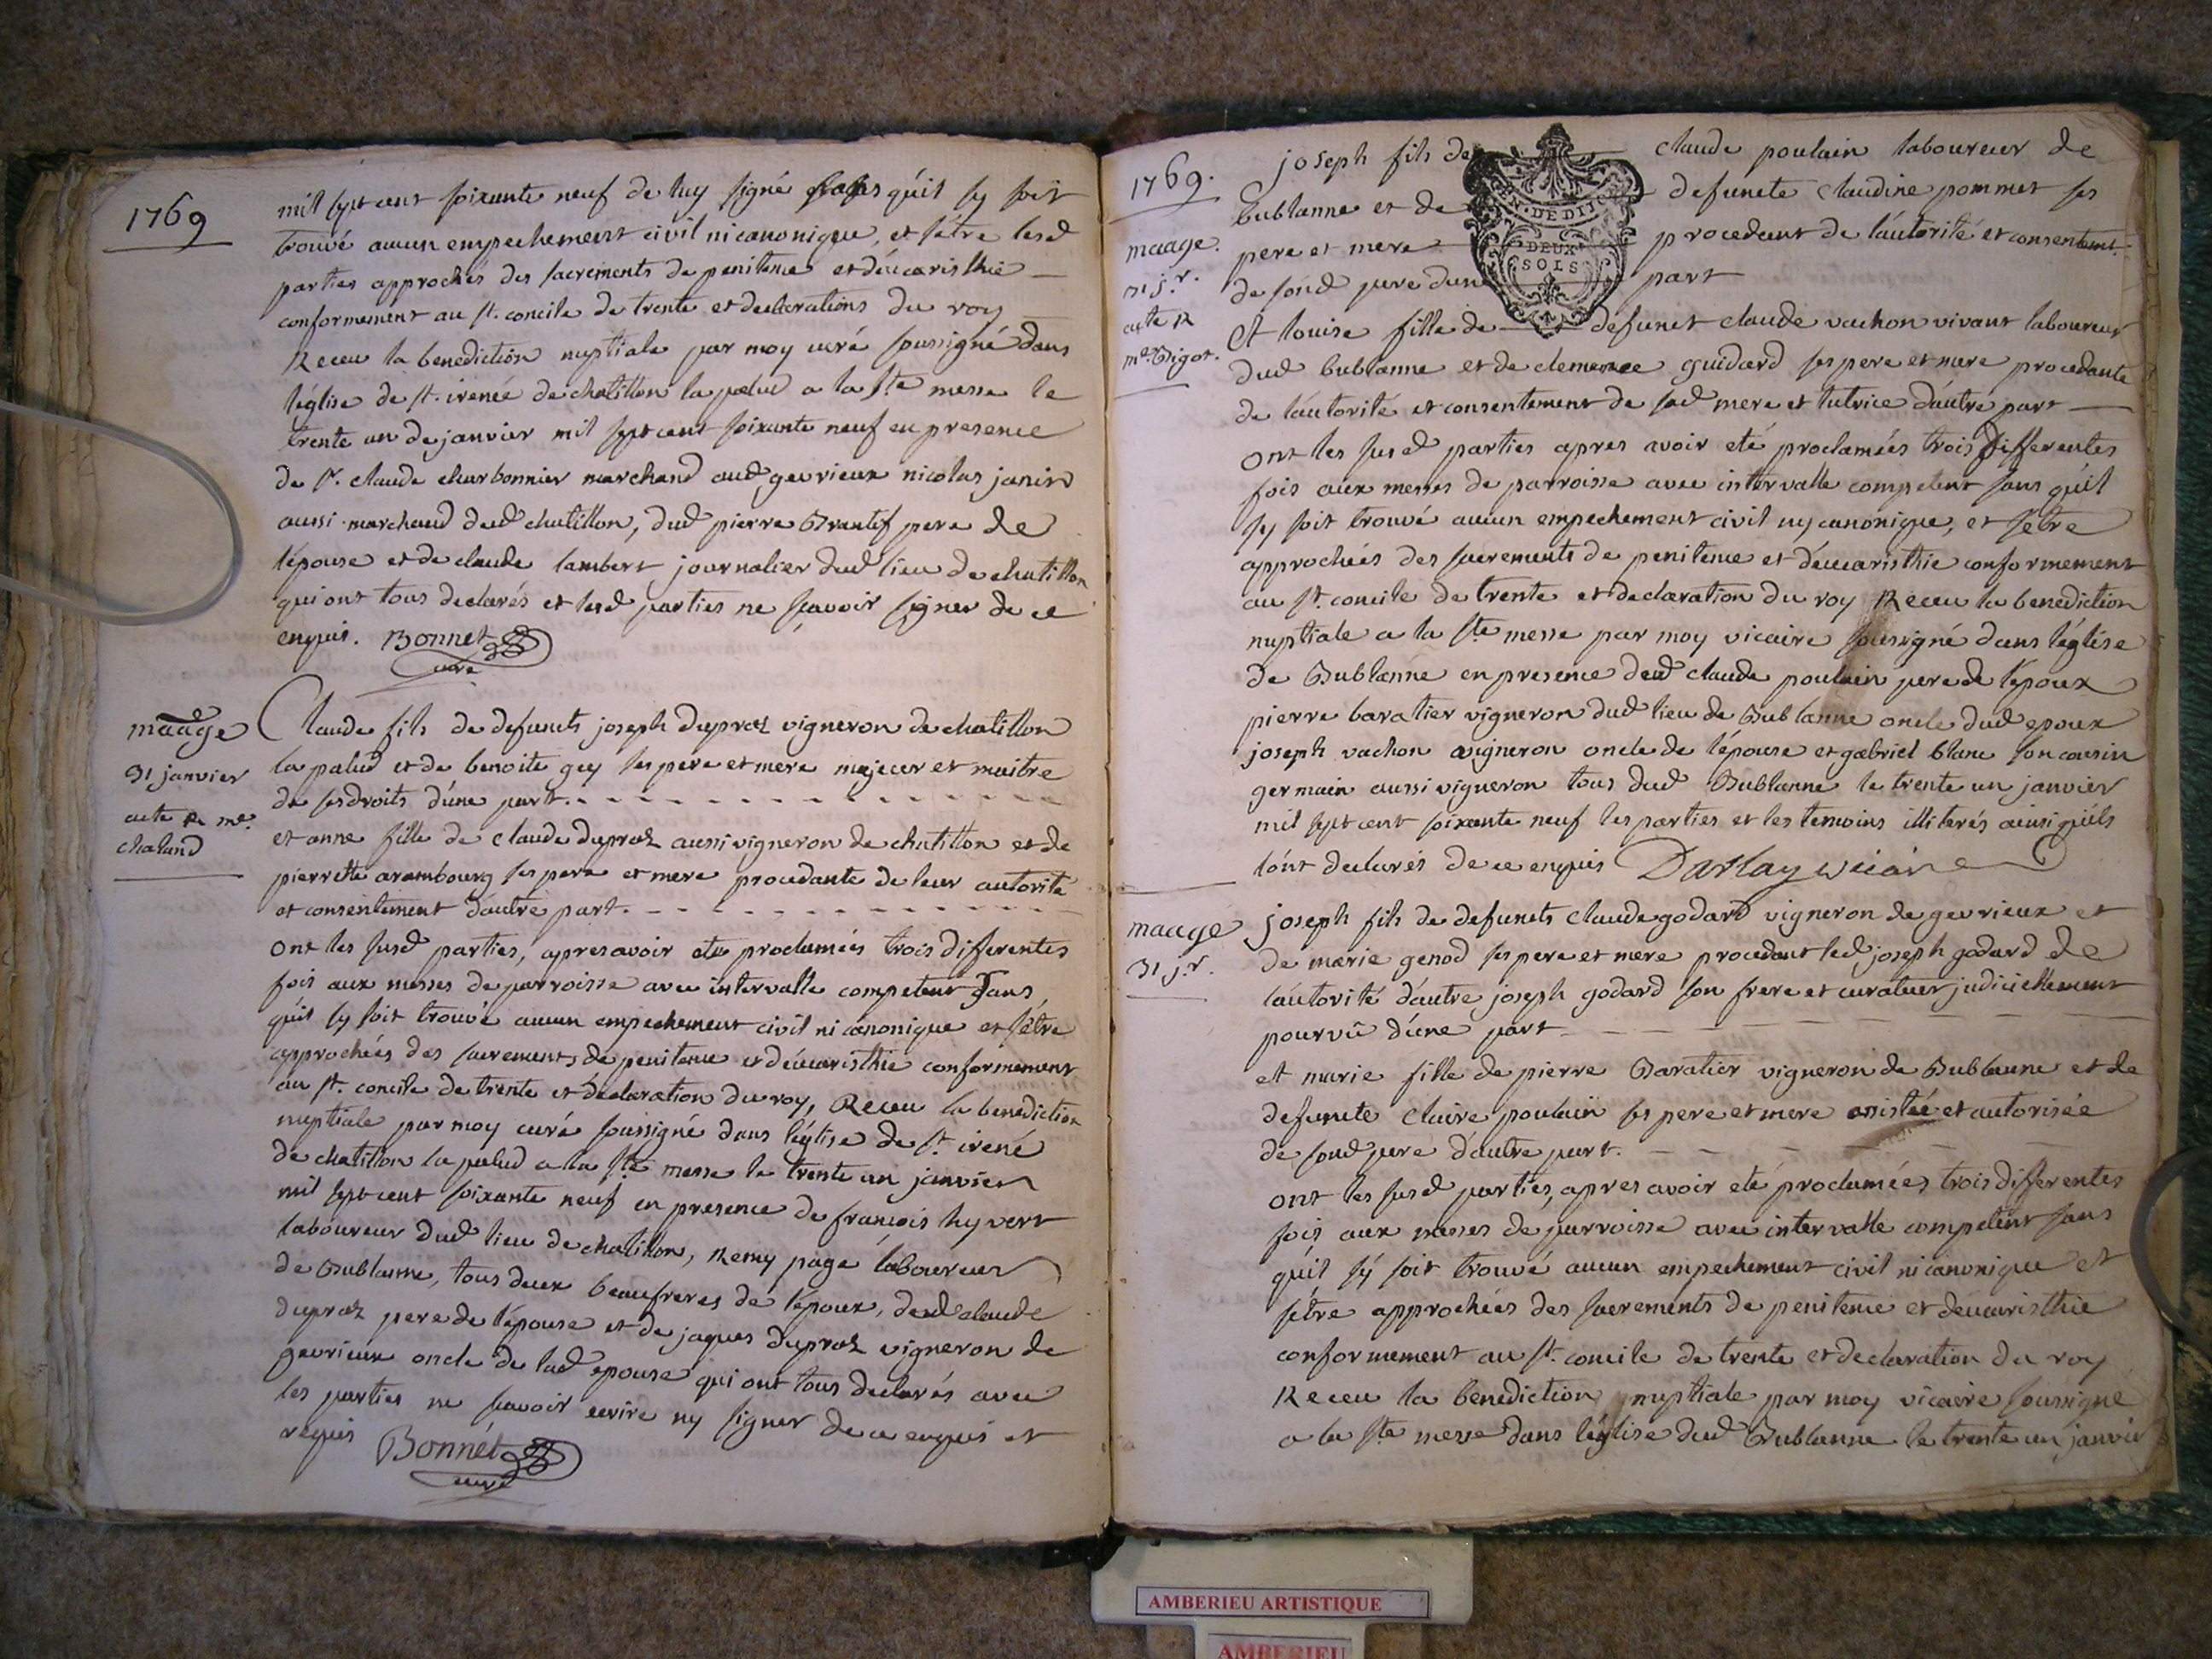 1769
mil sept cent soixante neuf de luy signé sans qu'il sy soit
trouvé aucun empechement civil ni canonique, et s'être lesd
parties approchés des sacrements de penitence et d'eucaristhie
conformement au st. concile de trente et declarations du roy
Receu la benediction nuptiale par moy curé soussigné dans
l'église de st. irenée de chatillon la palud a la ste messe le
trente un de janvier mil sept cent soixante neuf en presence
de sr. claude charbonnier marchand aud gevrieux nicolas janin
aussi marchand dud chatillon, dud pierre Brantif pere de
l'épouse et de claude lambert journalier dud lieu de chatillon
qui ont tous declarés et lesd parties ne sçavoir signer de ce
enquis. Bonnet
curé
maage
31 janvier
acte R me.
chaland
Claude fils de defunts joseph dupraz vigneron de chatillon
la palud et de benoite guy ses pere et mere majeur et maitre
de ses droits d'une part.
et anne fille de claude dupraz aussi vigneron de chatillon et de
pierrette arambourg ses pere et mere procedante de leur autorité
et consentement d'autre part.
ont les susd parties, apres avoir eté proclamées trois differentes
fois aux messes de parroisse avec intervalle competent sans
qu'il sy soit trouvé aucun empechement civil ni canonique et s'être
approchées des sacrements de penitence et d'eucaristhie conformement
au st. concile de trente et déclaration du roy, Receu la benediction
nuptiale par moy curé soussigné dans l'église de st irené
de chatillon la palud a la ste messe le trente un janvier
mil sept cent soixante neuf en presence de françois hyvert
laboureur dud lieu de chatillon, Remy page laboureur
de Bublanne, tous deux beaufreres de l'époux, dud claude
dupraz pere de l'épouse et de jaques dupraz vigneron de
gevrieux oncle de lad epouse qui ont tous declarés avec
les parties ne sçavoir ecrire ny signer de ce enquis et
requis Bonnét
curé
1769.
maage.
31 j.r.
acte R
me Bigot.
joseph fils de claude poulain laboureur de
bublanne et de defuncte claudine pommet ses
pere et mere procedant de l'autorité et consentemt.
de sond pere d'une part
EN. DE DIJON
DEUX
SOLS
et louise fille de defunct claude vachon vivant laboureur
dud bublanne et de clemence guidard ses pere et mere procedante
de l'autorité et consentement de sad mere et tutrice d'autre part
ont les susd parties apres avoir eté proclamées trois differentes
fois aux messes de parroisse avec intervalle competent sans qu'il
sy soit trouvé aucun empechement civil ny canonique, et s'être
approchées des sacrements de penitence et d'eucaristhie conformement
au st. concile de trente et declaration du roy Receu la benediction
nuptiale a la ste messe par moy vicaire soussigné dans l'église
de Bublanne en presence dud claude poulain pere de l'epoux
pierre baratier vigneron dud lieu de Bublanne oncle dud epoux
joseph vachon vigneron oncle de l'épouse et gabriel blanc son cousin
germain aussi vigneron tous dud Bublanne le trente un janvier
mil sept cent soixante neuf les parties et les temoins illiterés ainsi qu'ils
l'ont declarés de ce enquis Darlay vicaire
maage
31 j.r.
joseph fils de defuncts claude godard vigneron de gevrieux et
de marie genod ses pere et mere procedant led joseph godard de
l'autorité d'autre joseph godard son frere et curateur judiciellement
pourvû d'une part
et marie fille de pierre Baratier vigneron de Bublanne et de
defuncte claire poulain ses pere et mere assistée et autorisée
de sond pere d'autre part.
ont les susd parties, apres avoir eté proclamées trois differentes
fois aux messes de parroisse avec intervalle competent sans
qu'il sy soit trouvé aucun empechement civil ni canonique et
s'être approchées des sacrements de penitence et d'eucaristhie
conformement au st. concile de trente et declaration du roy
Receu la benediction nuptiale par moy vicaire soussigné
a la ste messe dans l'église dud Bublanne le trente un janvier
AMBERIEU ARTISTIQUE
AMBERIEU